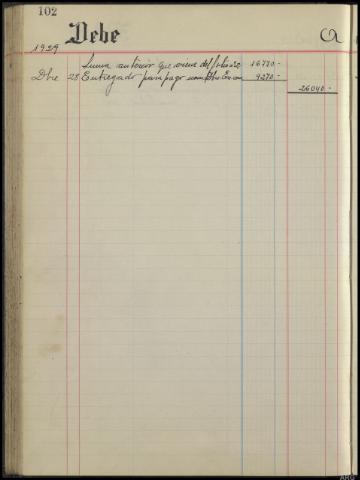 102
Debe
Ca
1929
Suma anterior que viene del folio 20 16770.-
Dbre 28 Entregado para pago 9270.-
26040.-
ARG